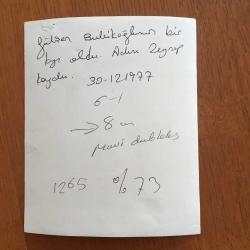 Gülsen Bubikoğlunun bir
kızı oldu. Adını Zeynep
koydu.
30-12-1977
6-1
→ 8
Mavi
1265 % 73